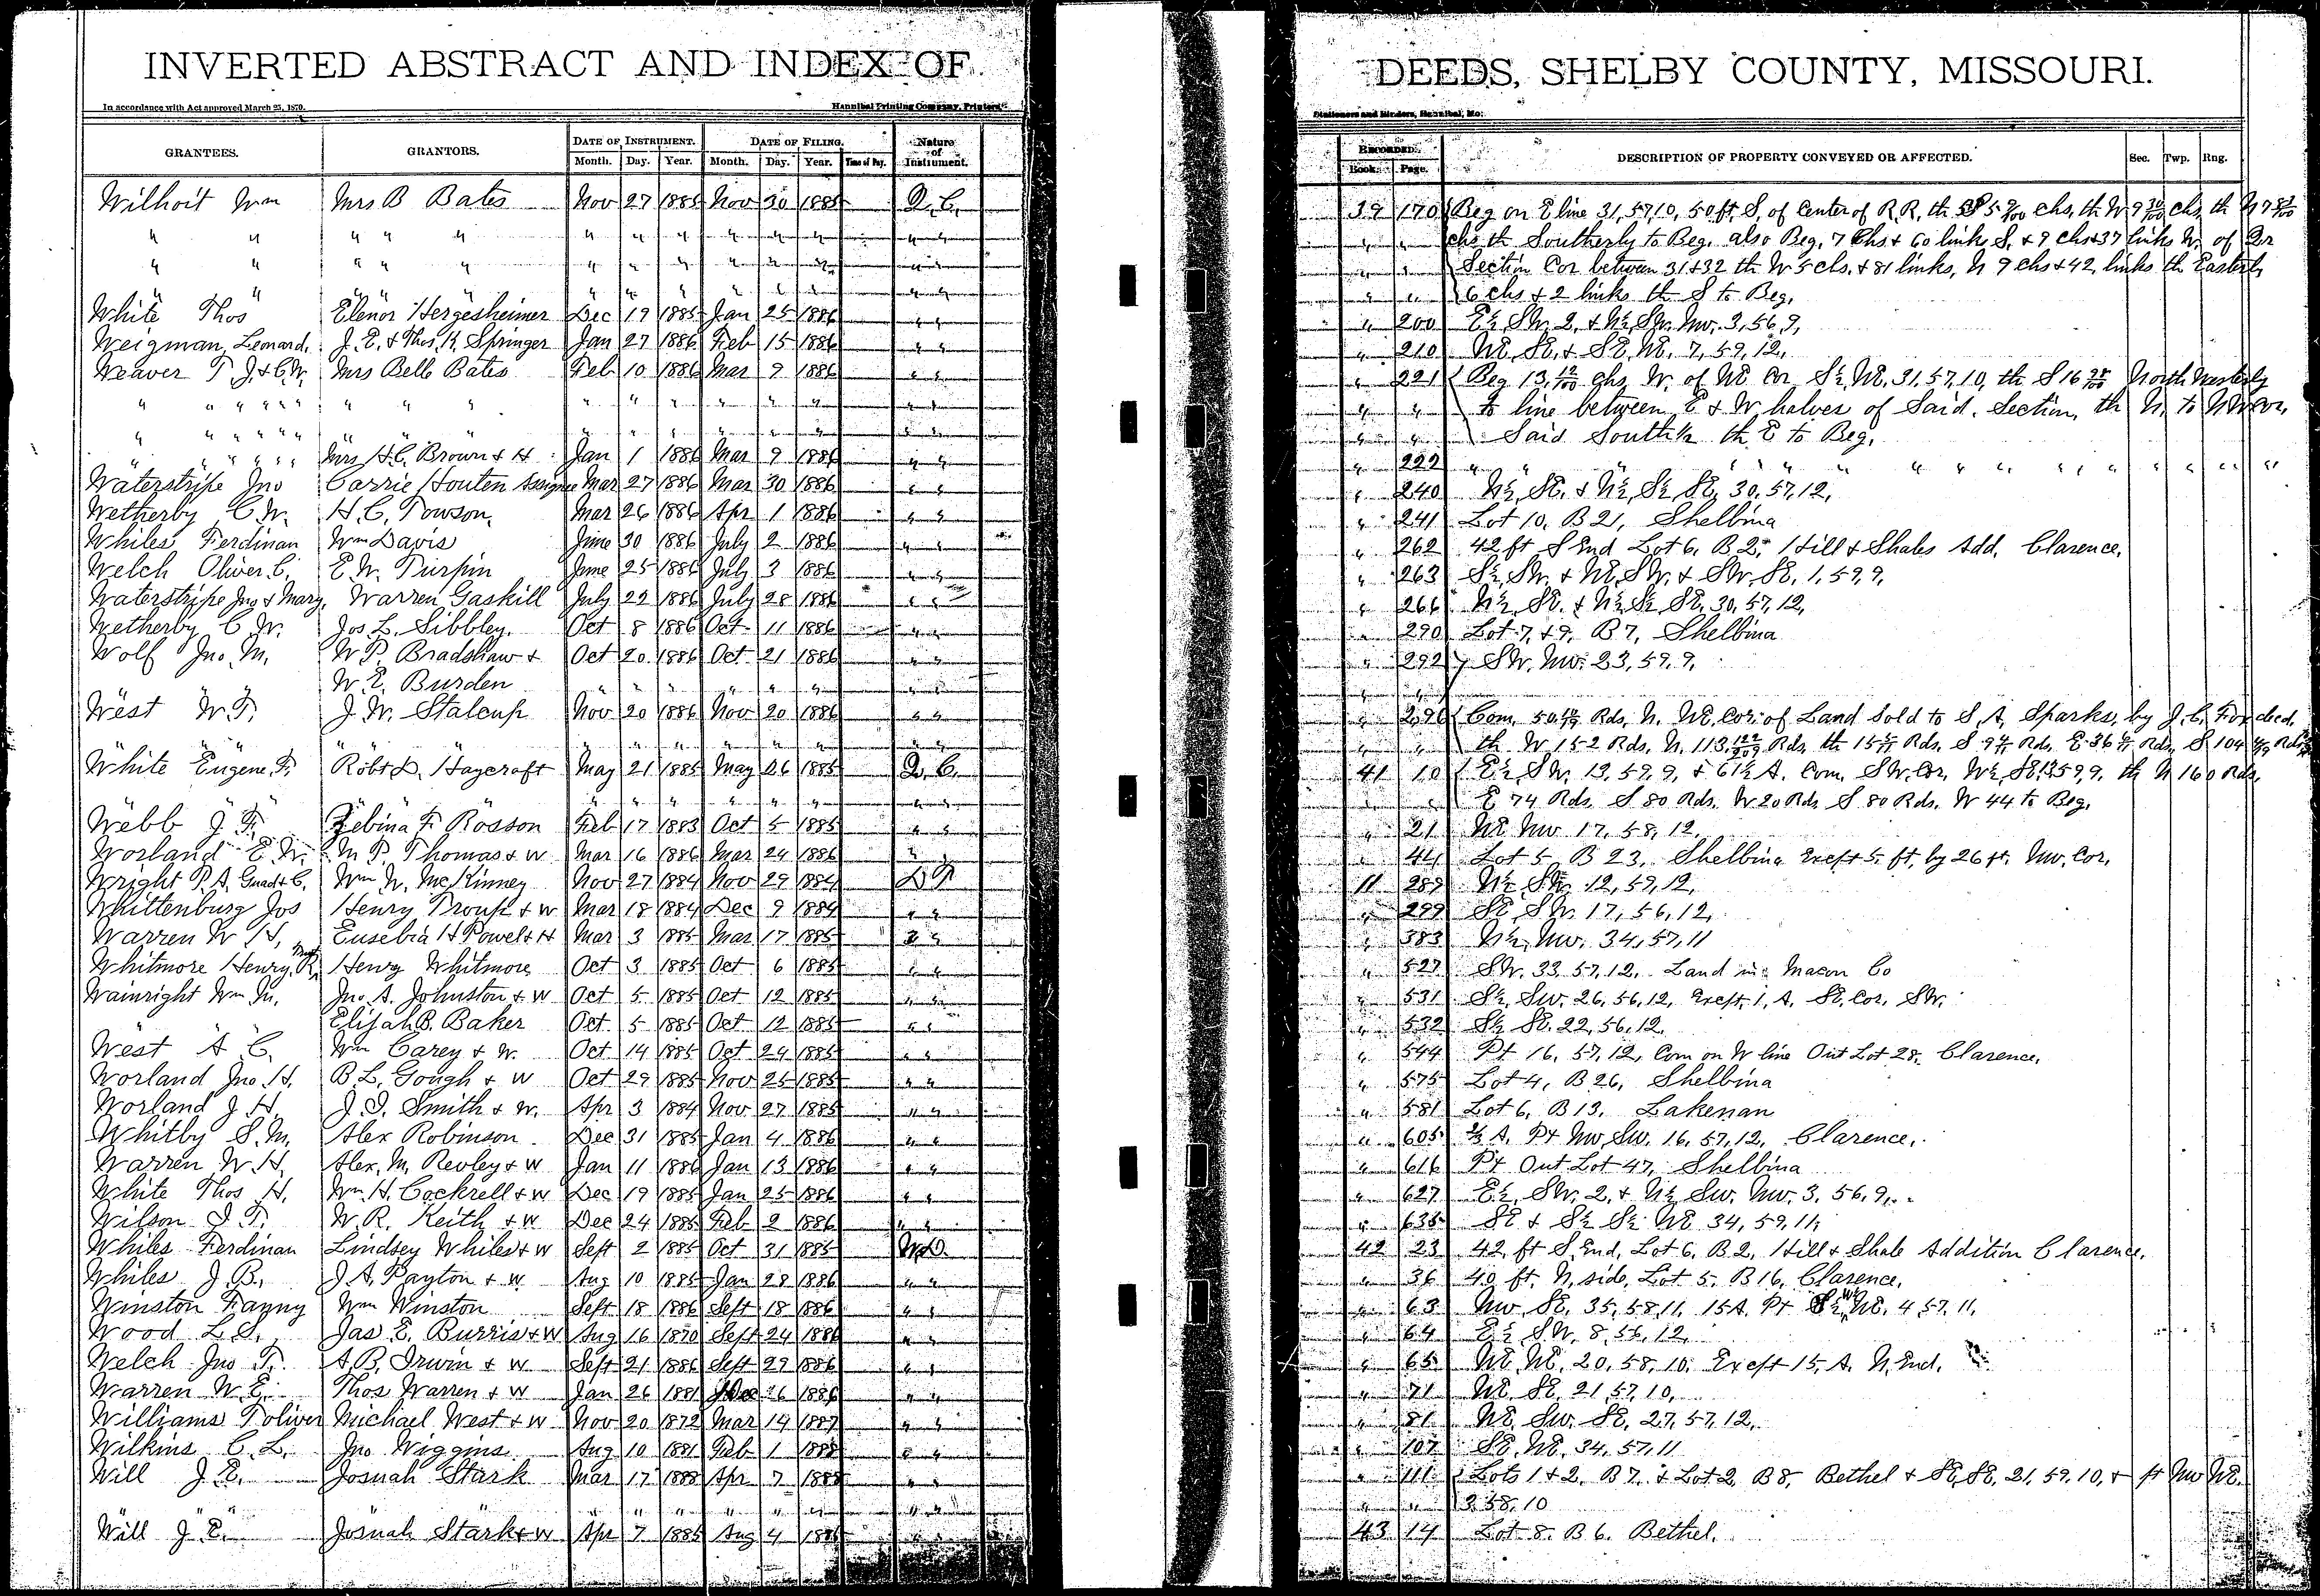 INVERTED ABSTRACT AND INDEX OF
DEEDS, SHELBY COUNTY, MISSOURI.
In accordance with Act approved March 25, 1870.
Hannibal Printing Company, Printers
Stationers and Binders, Hannibal, Mo:
GRANTEES. GRANTORS. DATE OF INSTRUMENT. DATE OF FILING. Nature of Instrument.
Month. Day. Year. Month. Day. Year. Time of Day.
RECORDED. DESCRIPTION OF PROPERTY CONVEYED OR AFFECTED. Sec. Twp. Rng.
Book. Page.
Wilhoit Wm Mrs B Bates Nov 27 1885 Nov 30 1885 Q.C. 39 170 Beg on E line 31,57,10, 50 ft, S, of Center of R.R. th
" " " " " " " " " " " " " chs th Southerly to Beg. also Beg. 7 Chs + 60 links S, + 9 chs + 37 links W. of Qr
" " " " " " " " " " " " " Section Cor between 31+32 th W 5 chs. + 81 links, N 9 chs + 42 links th Easterly
" " " " " " " " " " " " 6 chs + 2 links th S to Beg.
White Thos Elenor Hergesheimer Dec 19 1885 Jan 25 1886 " " " 200 E½ SW. 2, + N½ SW. NW. 3, 56, 9,
Weigman, Leonard. J. E. + Thos. K. Springer Jan 27 1886 Feb 15 1886 " " " 210 NE, SE, + SE, NE, 7, 59, 12,
Weaver T. J. + C. W. Mrs Belle Bates Feb 10 1886 Mar 9 1886 " " " 221 Beg 13, 12/100 chs, W. of NE Cor S½, NE, 31, 57, 10, th S 16 North Westerly
" " " " " " " " " " " " " " to line between E + W halves of Said. Section, th N. to NW cor,
" " " " " " " " " " " " " " Said South ½ th E to Beg,
" " " " Mrs H. C. Brown + H Jan 1 1886 Mar 9 1886 " " " 222 " " " " " " " "
Waterstripe Jno Carrie Houten Assignee Mar 27 1886 Mar 30 1886 " " " 240 N½, SE, + N½, S½ SE, 30, 57, 12,
Wetherby C. W. H. C. Towson, Mar 26 1886 Apr 1 1886 " " " 241 Lot 10, B 21, Shelbina
Whiles Ferdinan Wm Davis June 30 1886 July 2 1886 " " " 262 42 ft S End Lot 6, B 2, Hill + Shales Add, Clarence,
Welch Oliver C. E. W. Turpin June 25 1886 July 3 1886 " " " 263 S½, SW, + NE, SW, + SW, SE, 1, 59, 9,
Waterstripe Jno + Mary, Warren Gaskill July 22 1886 July 28 1886 " " " 266 N½, SE, + N½ S½ SE, 30, 57, 12,
Wetherby C. W. Jos. L. Sibbley. Oct 8 1886 Oct 11 1886 " " " 290 Lot 7, + 9, B 7, Shelbina
Wolf Jno. M. W. P. Bradshaw + Oct 20 1886 Oct 21 1886 " " " 292 SW. NW. 23, 59, 9,
W. E. Burden " " " " " " " "
West W. T. J. W. Stalcup Nov 20 1886 Nov 20 1886 " " " 296 Com, Rds, N. NE, Cor of Land Sold to S. A. Sparks, by J. C. Ford ded,
" " " " " " " " " " " " " th W 152 Rds, N. 113 Rds th Rds, S Rds. E. 36 Rds, S 104 Rds
White Eugene. F. Robt D. Haycraft May 21 1885 May 26 1885 Q. C. 41 10 E½, SW. 12, 59, 9, + 61½ A. Com. SW. Cor, W½, SE, 12, 59, 9, th N 160 Rds,
" " " " " " " " " E 74 Rds. S 80 Rds. W 20 Rds S 80 Rds. W 44 to Beg.
Webb J. T. Zebina F. Rosson Feb 17 1883 Oct 5 1885 " " " 21 NE NW 17, 58, 12,
Worland E. W. M. P. Thomas + W Mar 16 1886 Mar 24 1886 " " 44 Lot 5, B 23, Shelbina Except 5. ft. by 26 ft. NW. Cor.
Wright P. A. Guad + C. Wm W. McKinney Nov 27 1884 Nov 29 1884 11 289 N½ SW. 12, 59, 12,
Whittenburg Jos Henry Troup + W Mar 18 1884 Dec 9 1884 " " " 299 SE, SW. 17, 56, 12,
Warren W. H. Eusebia H Powel + H Mar 3 1885 Mar 17 1885 " " " 383 N½, NW. 34, 57, 11
Whitmore Henry R. Henry Whitmore Oct 3 1885 Oct 6 1885 " " " 527 SW. 33, 57, 12, Land in Macon Co
Wainright Wm M. Jno A. Johnston + W Oct 5 1885 Oct 12 1885 " " " 531 S½, SW. 26, 56, 12, Except 1, A, SE, Cor, SW.
Elijah B. Baker Oct 5 1885 Oct 12 1885 " " " 532 S½ SE. 22, 56, 12,
West A. C. Wm Carey + W. Oct 14 1885 Oct 24 1885 " " " 544 Pt 16, 57, 12, Com on W line Out Lot 28, Clarence,
Worland Jno. H. B. L. Gough + W Oct 29 1885 Nov 25 1885 " " " 575 Lot 4, B 26, Shelbina
Worland J H. J. I. Smith + W. Apr 3 1884 Nov 27 1885 " " " 581 Lot 6, B 13. Lakenan
Whitby S. M. Alex Robinson Dec 31 1885 Jan 4 1886 " " " 605 A, Pt NW, SW. 16, 57, 12, Clarence,
Warren W. H. Alex. M. Revley + W Jan 11 1886 Jan 13 1886 " " " 616 Pt Out Lot 47, Shelbina
White Thos H. Wm. H. Cockrell + W Dec 19 1885 Jan 25 1886 " " " 627 E½, SW. 2, + N½ SW. NW. 3, 56, 9,
Wilson J. T. W. R. Keith + W Dec 24 1885 Feb 2 1886 " " " 635 SE + S½ S½ NE 34, 59, 11,
Whiles Ferdinan Lindsey Whiles + W Sept 2 1885 Oct 31 1885 W.D. 42 23 42, ft S, End, Lot 6, B. 2, Hill + Shale Addition Clarence.
Whiles J. B. J. A. Payton + W Aug 10 1885 Jan 28 1886 " " " 36 40 ft. N, side, Lot 5, B 16, Clarence,
Winston Fanny Wm Winston Sept 18 1886 Sept 18 1886 " " " 63 NW, SE, 35, 58, 11, 15 A. Pt NE, 4, 57, 11,
Wood L. S. Jas E. Burris + W Aug 16 1870 Sept 24 1886 " " " 64 E½ SW. 8, 56, 12,
Welch Jno F. A. B. Irwin + W Sept 21 1886 Sept 29 1886 " " " 65 NE, NE, 20, 58, 10, Except 15, A. N. End,
Warren W. E. Thos Warren + W Jan 26 1881 Dec 26 1886 " " " 71 NE, SE, 21, 57, 10,
Williams Toliver Michael West + W Nov 20 1872 Mar 14 1887 " " " 81 NE, SW. SE, 27, 57, 12,
Wilkins C. L. Jno Wiggins Aug 10 1881 Feb 1 1888 " " " 107 SE, NE, 34, 57, 11
Will J. E. Josuah Stark Mar 17 1888 Apr 7 1888 " " " 111 Lots 1 + 2, B 7, + Lot 2, B 8, Bethel + SE, SE, 21, 59, 10, + pt NW NE.
" " " " " " " " " " " " 3, 58, 10
Will J. E. Josuah Stark + W Apr 7 1885 Aug 4 1885 " " 43 14 Lot 8, B 6, Bethel.